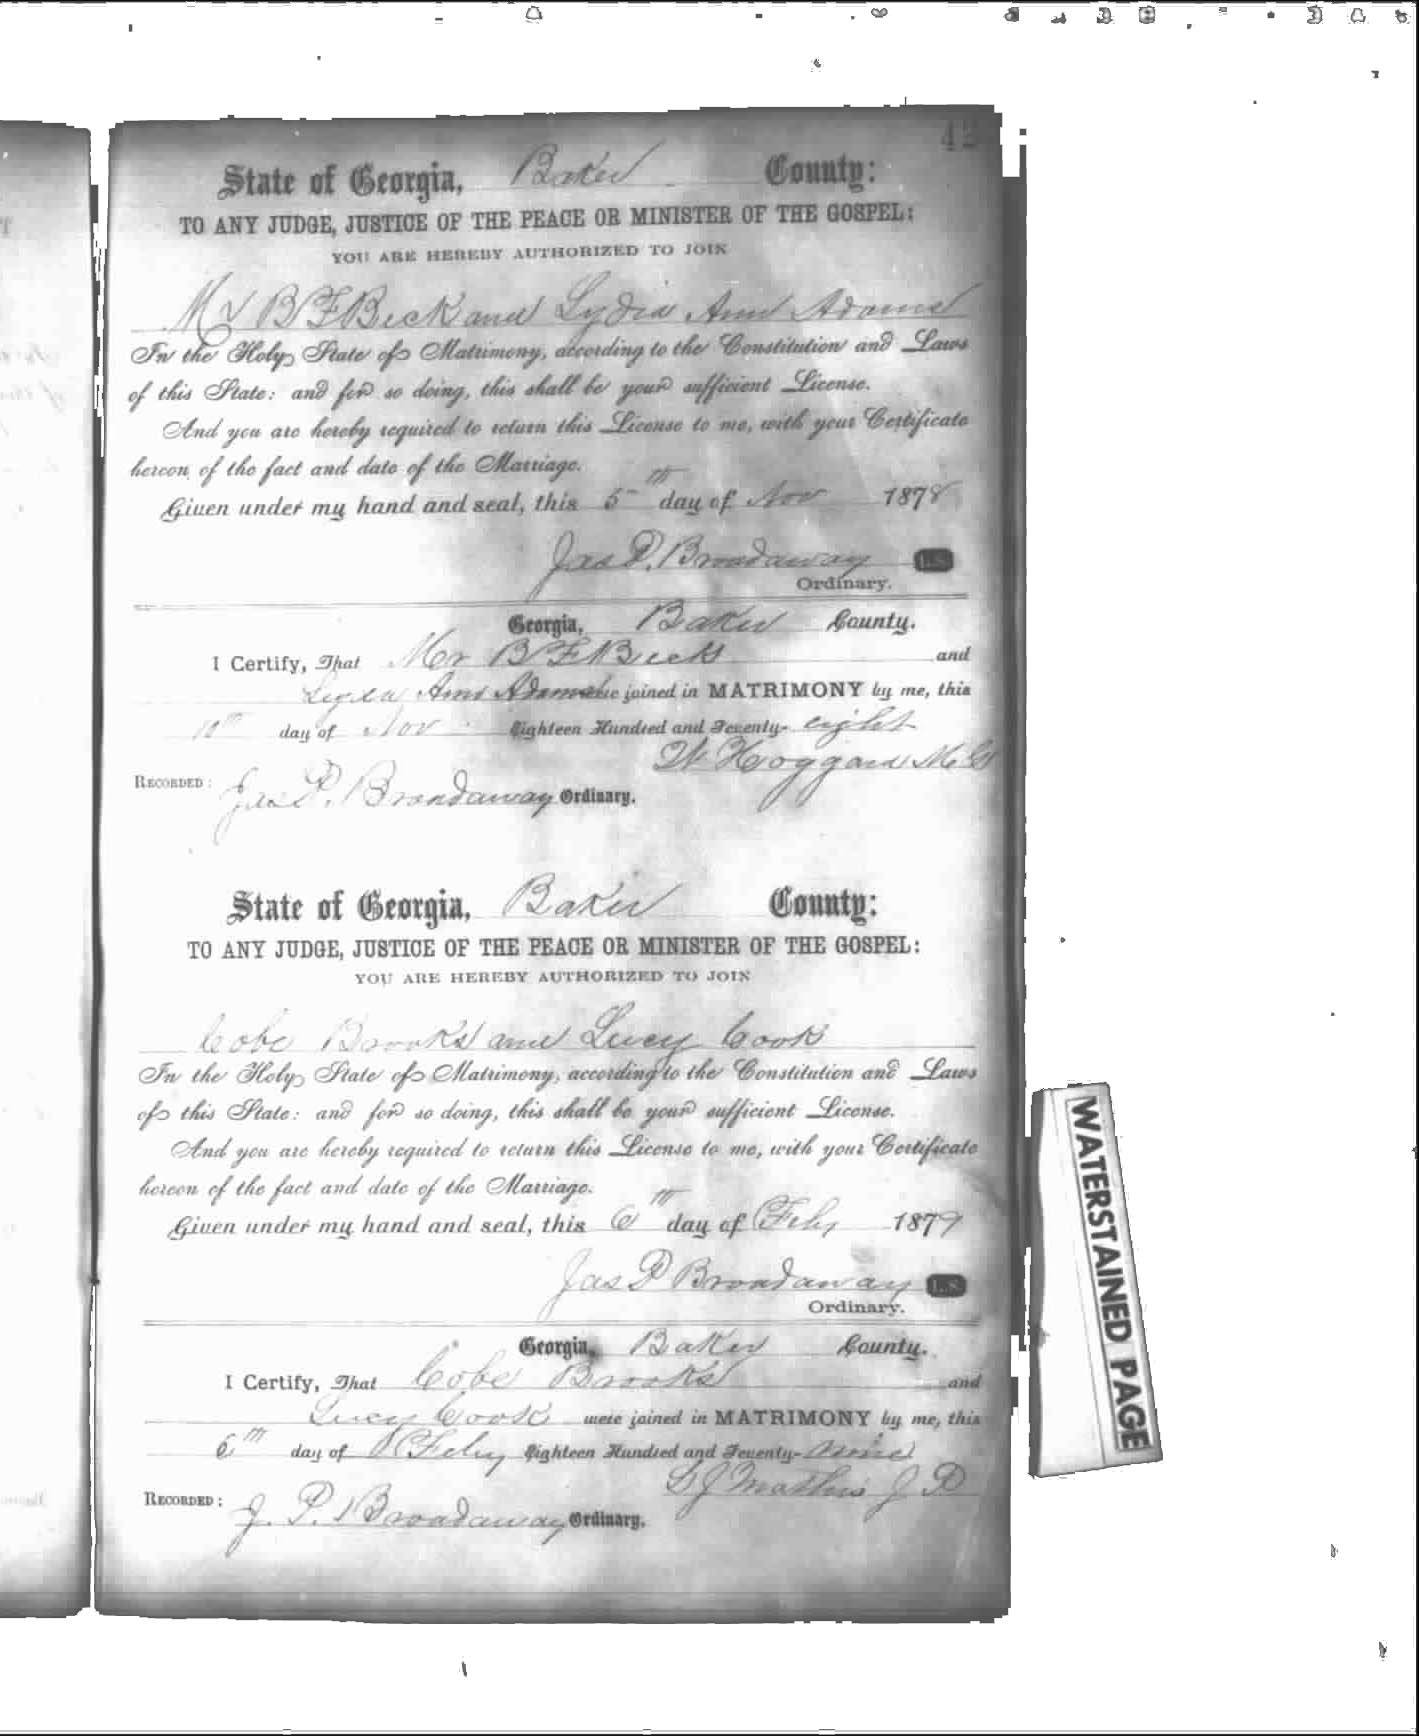 State of Georgia, Baker County:
TO ANY JUDGE, JUSTICE OF THE PEACE OR MINISTER OF THE GOSPEL:
YOU ARE HEREBY AUTHORIZED TO JOIN
Mr B F Beck and Lydia Ann Adams
In the Holy State of Matrimony, according to the Constitution and Laws
of this State: and for so doing, this shall be your sufficient License.
And you are hereby required to return this License to me, with your Certificate
hereon of the fact and date of the Marriage.
Given under my hand and seal, this 5th day of Nov 1878
Jas P. Broadaway L.S.
Ordinary.
Georgia, Baker County.
I Certify, That Mr B F Beck and
Lydia Ann Adams were joined in MATRIMONY by me, this
10th day of Nov Eighteen Hundred and Seventy- eight
W Hoggard M G
RECORDED: Jas P. Broadaway Ordinary.
State of Georgia, Baker County:
TO ANY JUDGE, JUSTICE OF THE PEACE OR MINISTER OF THE GOSPEL:
YOU ARE HEREBY AUTHORIZED TO JOIN
Cobe Brooks and Lucy Cook
In the Holy State of Matrimony, according to the Constitution and Laws
of this State: and for so doing, this shall be your sufficient License.
And you are hereby required to return this License to me, with your Certificate
hereon of the fact and date of the Marriage.
Given under my hand and seal, this 6th day of Feby 1879
Jas P Broadaway L.S
Ordinary.
Georgia, Baker County.
I Certify, That Cobe Brooks and
Lucy Cook were joined in MATRIMONY by me, this
6th day of Feby Eighteen Hundred and Seventy- nine
J Mathis J P
RECORDED: J. P. Broadaway Ordinary.
WATERSTAINED PAGE